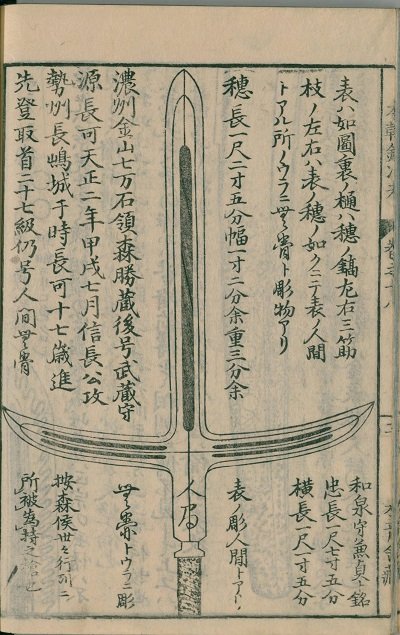 表ハ如圖裏ノ樋ハ穂ノ鎬左右三筋
枝ノ左右ハ表ノ穂ノ如クニテ表ノ人間
トアル所ノウラニ無骨ト彫物アリ
穂長一尺二寸五分幅一寸二分余重三分余
濃州金山七万石領森勝蔵後号武蔵守
源長可天正二年甲戌七月信長公攻
勢州長嶋城于時長可十七歳進
先登取首二十七級仍号人間無骨
和泉守兼貞ト銘
忠長一尺七寸五分
横長一尺一寸五分
表ノ彫人間トアリ
人間
無骨トウラニ彫
按森侯世々行列ニ
所被為持之鎗也